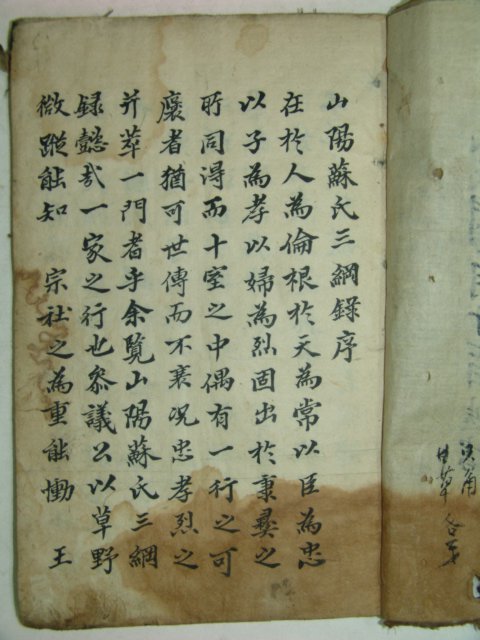 山陽蘇氏三綱錄序
在於人為倫根於天為常以臣為忠
以子為孝以婦為烈固出於秉彝之
所同得而十室之中偶有一行之可
褒者猶可世傳而不衰况忠孝烈之
幷萃一門者乎余覽山陽蘇氏三綱
録懿哉一家之行也叅議公以草野
微蹤能知 宗社之為重能慟 王